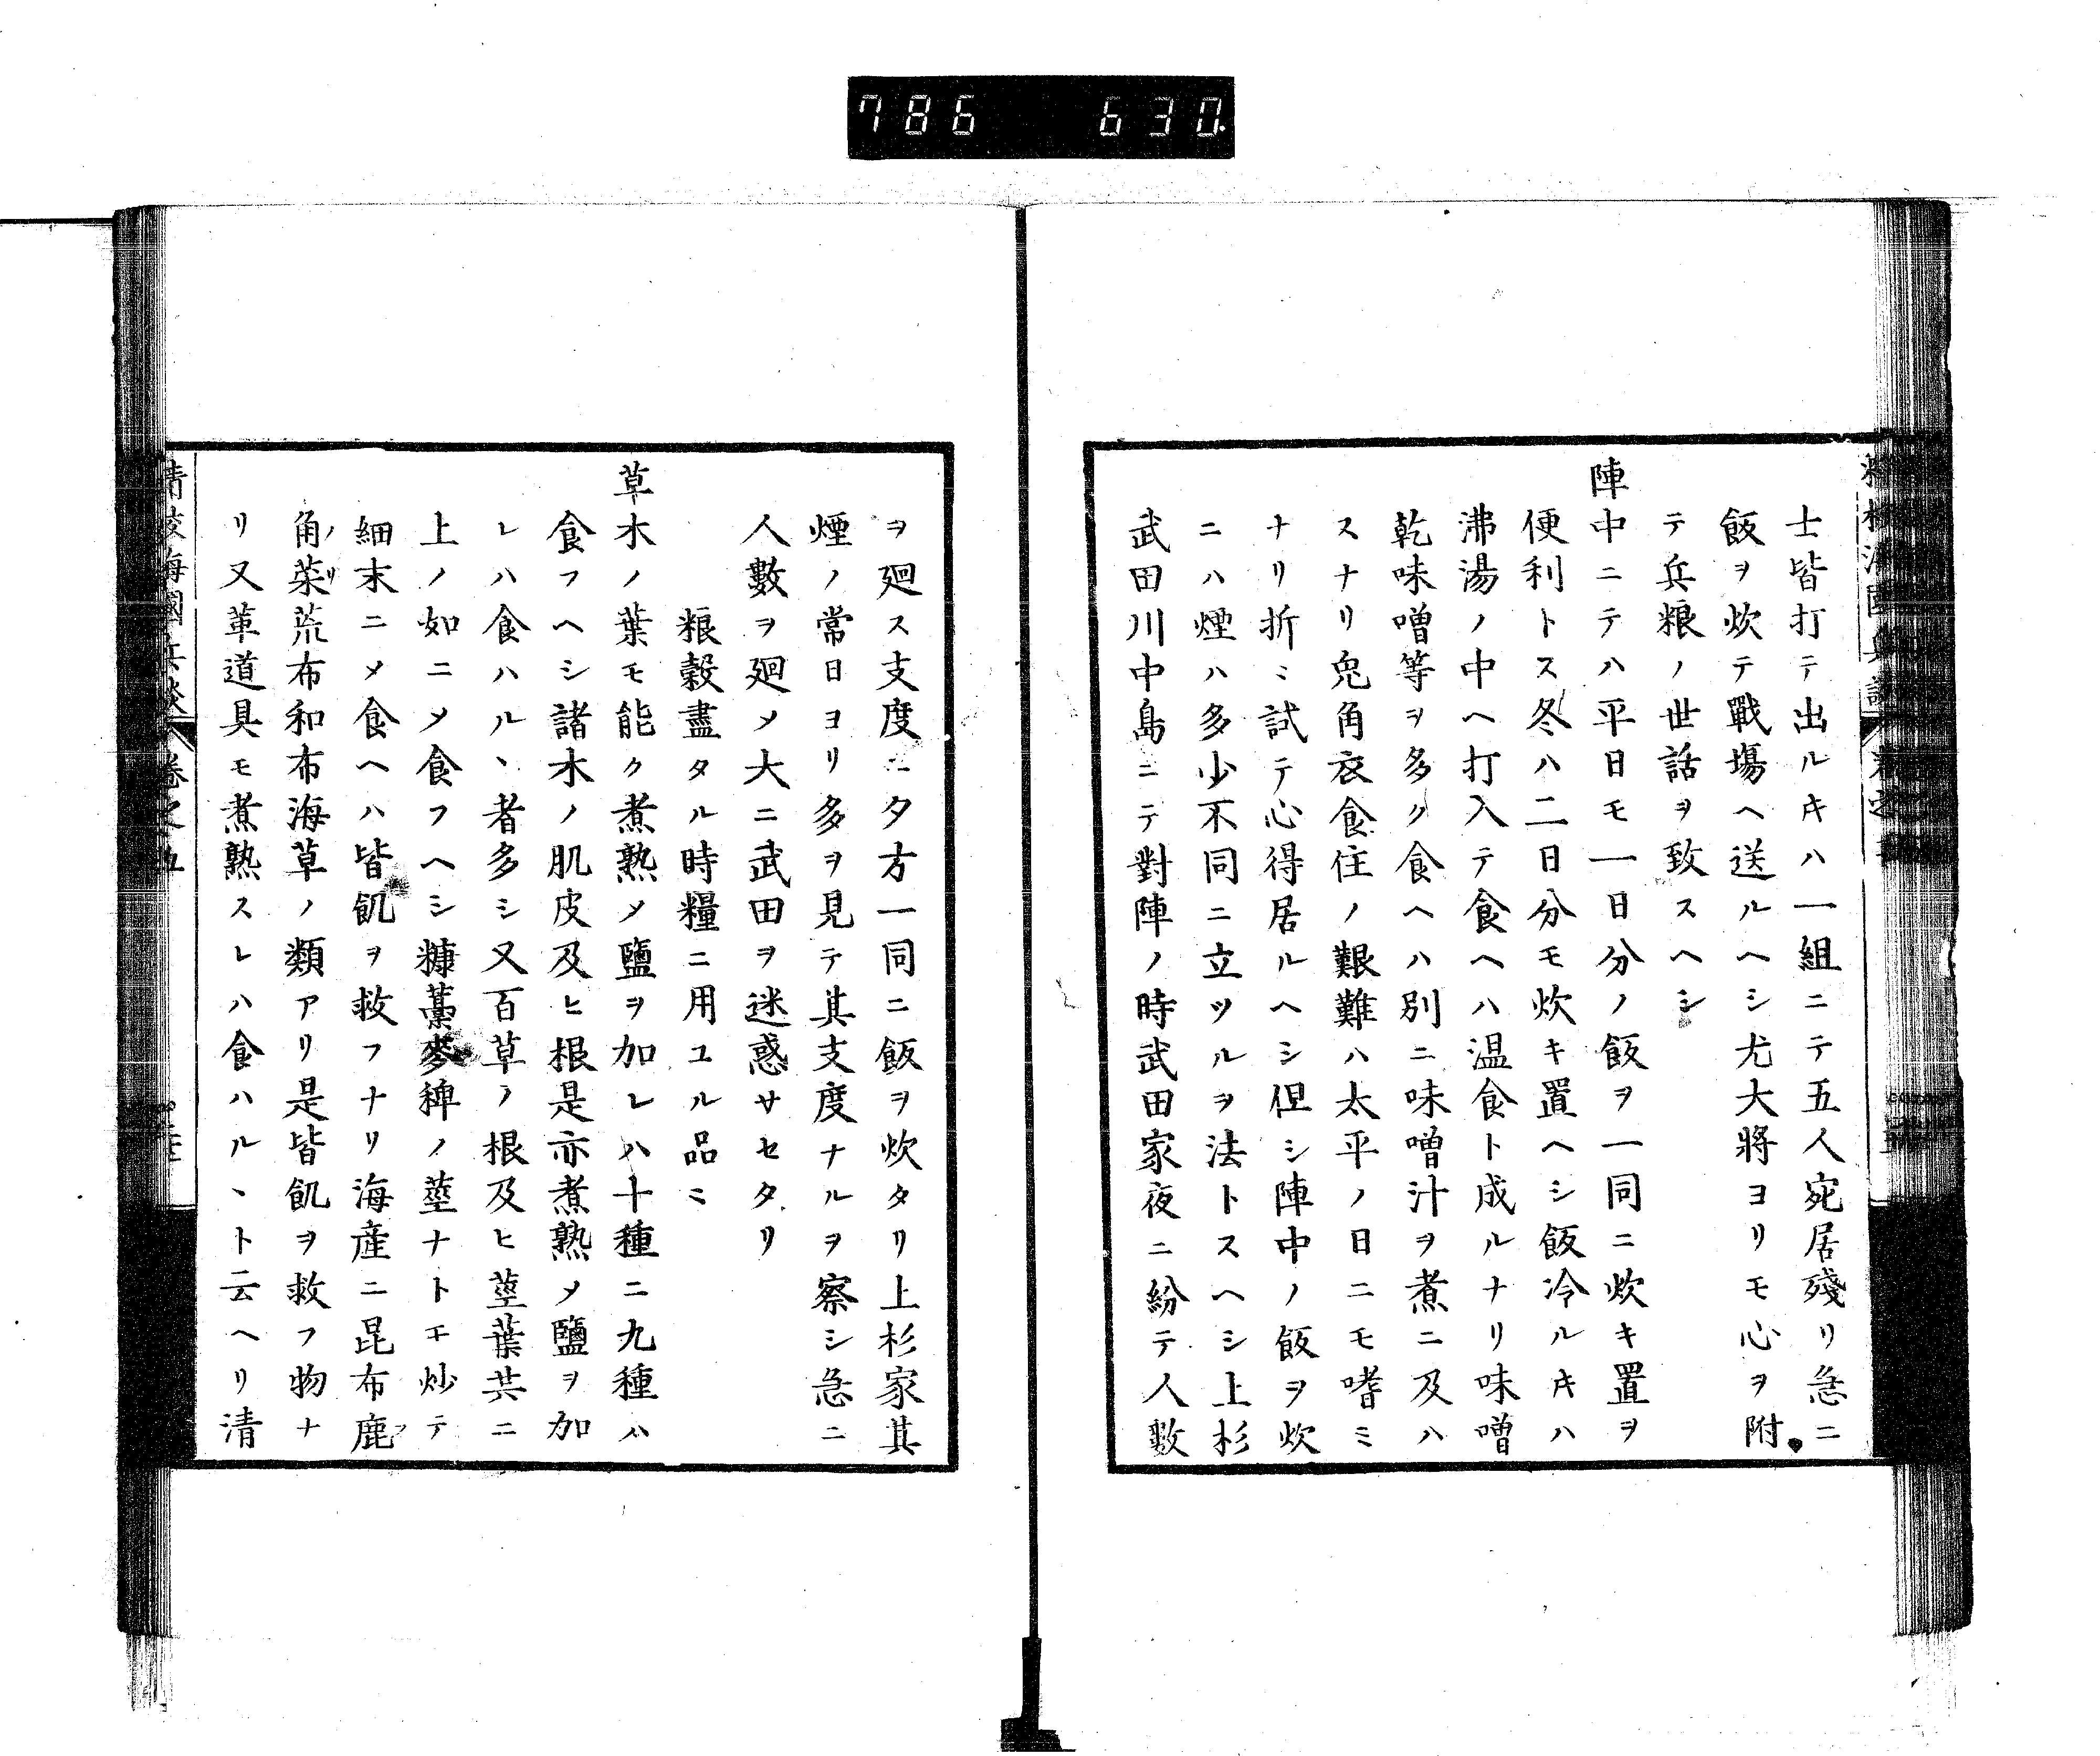 786 630
士皆打テ出ルキハ一組ニテ五人宛居殘リ急ニ
飯ヲ炊テ戰塲ヘ送ルヘシ尤大將ヨリモ心ヲ附
テ兵粮ノ世話ヲ致スヘシ
陣中ニテハ平日モ一日分ノ飯ヲ一同ニ炊キ置ヲ
便利トス冬ハ二日分モ炊キ置ヘシ飯冷ルキハ
沸湯ノ中ヘ打入テ食ヘハ温食ト成ルナリ味噌
乾味噌等ヲ多ク食ヘハ別ニ味噌汁ヲ煮ニ及ハ
スナリ兎角衣食住ノ艱難ハ太平ノ日ニモ嗜ミ
ナリ折〻試テ心得居ルヘシ但シ陣中ノ飯ヲ炊
ニハ煙ハ多少不同ニ立ツルヲ法トスヘシ上杉
武田川中島ニテ對陣ノ時武田家夜ニ紛テ人數
ヲ廻ス支度ニ夕方一同ニ飯ヲ炊タリ上杉家其
煙ノ常日ヨリ多ヲ見テ其支度ナルヲ察シ急ニ
人數ヲ廻メ大ニ武田ヲ迷惑サセタリ
粮穀盡タル時糧ニ用ユル品〻
草木ノ葉モ能ク煮熟メ鹽ヲ加レハ十種ニ九種ハ
食フヘシ諸木ノ肌皮及ヒ根是亦煮熟メ鹽ヲ加
レハ食ハルヽ者多シ又百草ノ根及ヒ莖葉共ニ
上ノ如ニメ食フヘシ糠藁麥稗ノ莖ナトモ炒テ
細末ニメ食ヘハ皆飢ヲ救フナリ海産ニ昆布鹿
角菜荒布和布海草ノ類アリ是皆飢ヲ救フ物ナ
リ又革道具モ煮熟スレハ食ハルヽト云ヘリ清
精校海國兵談 卷之五